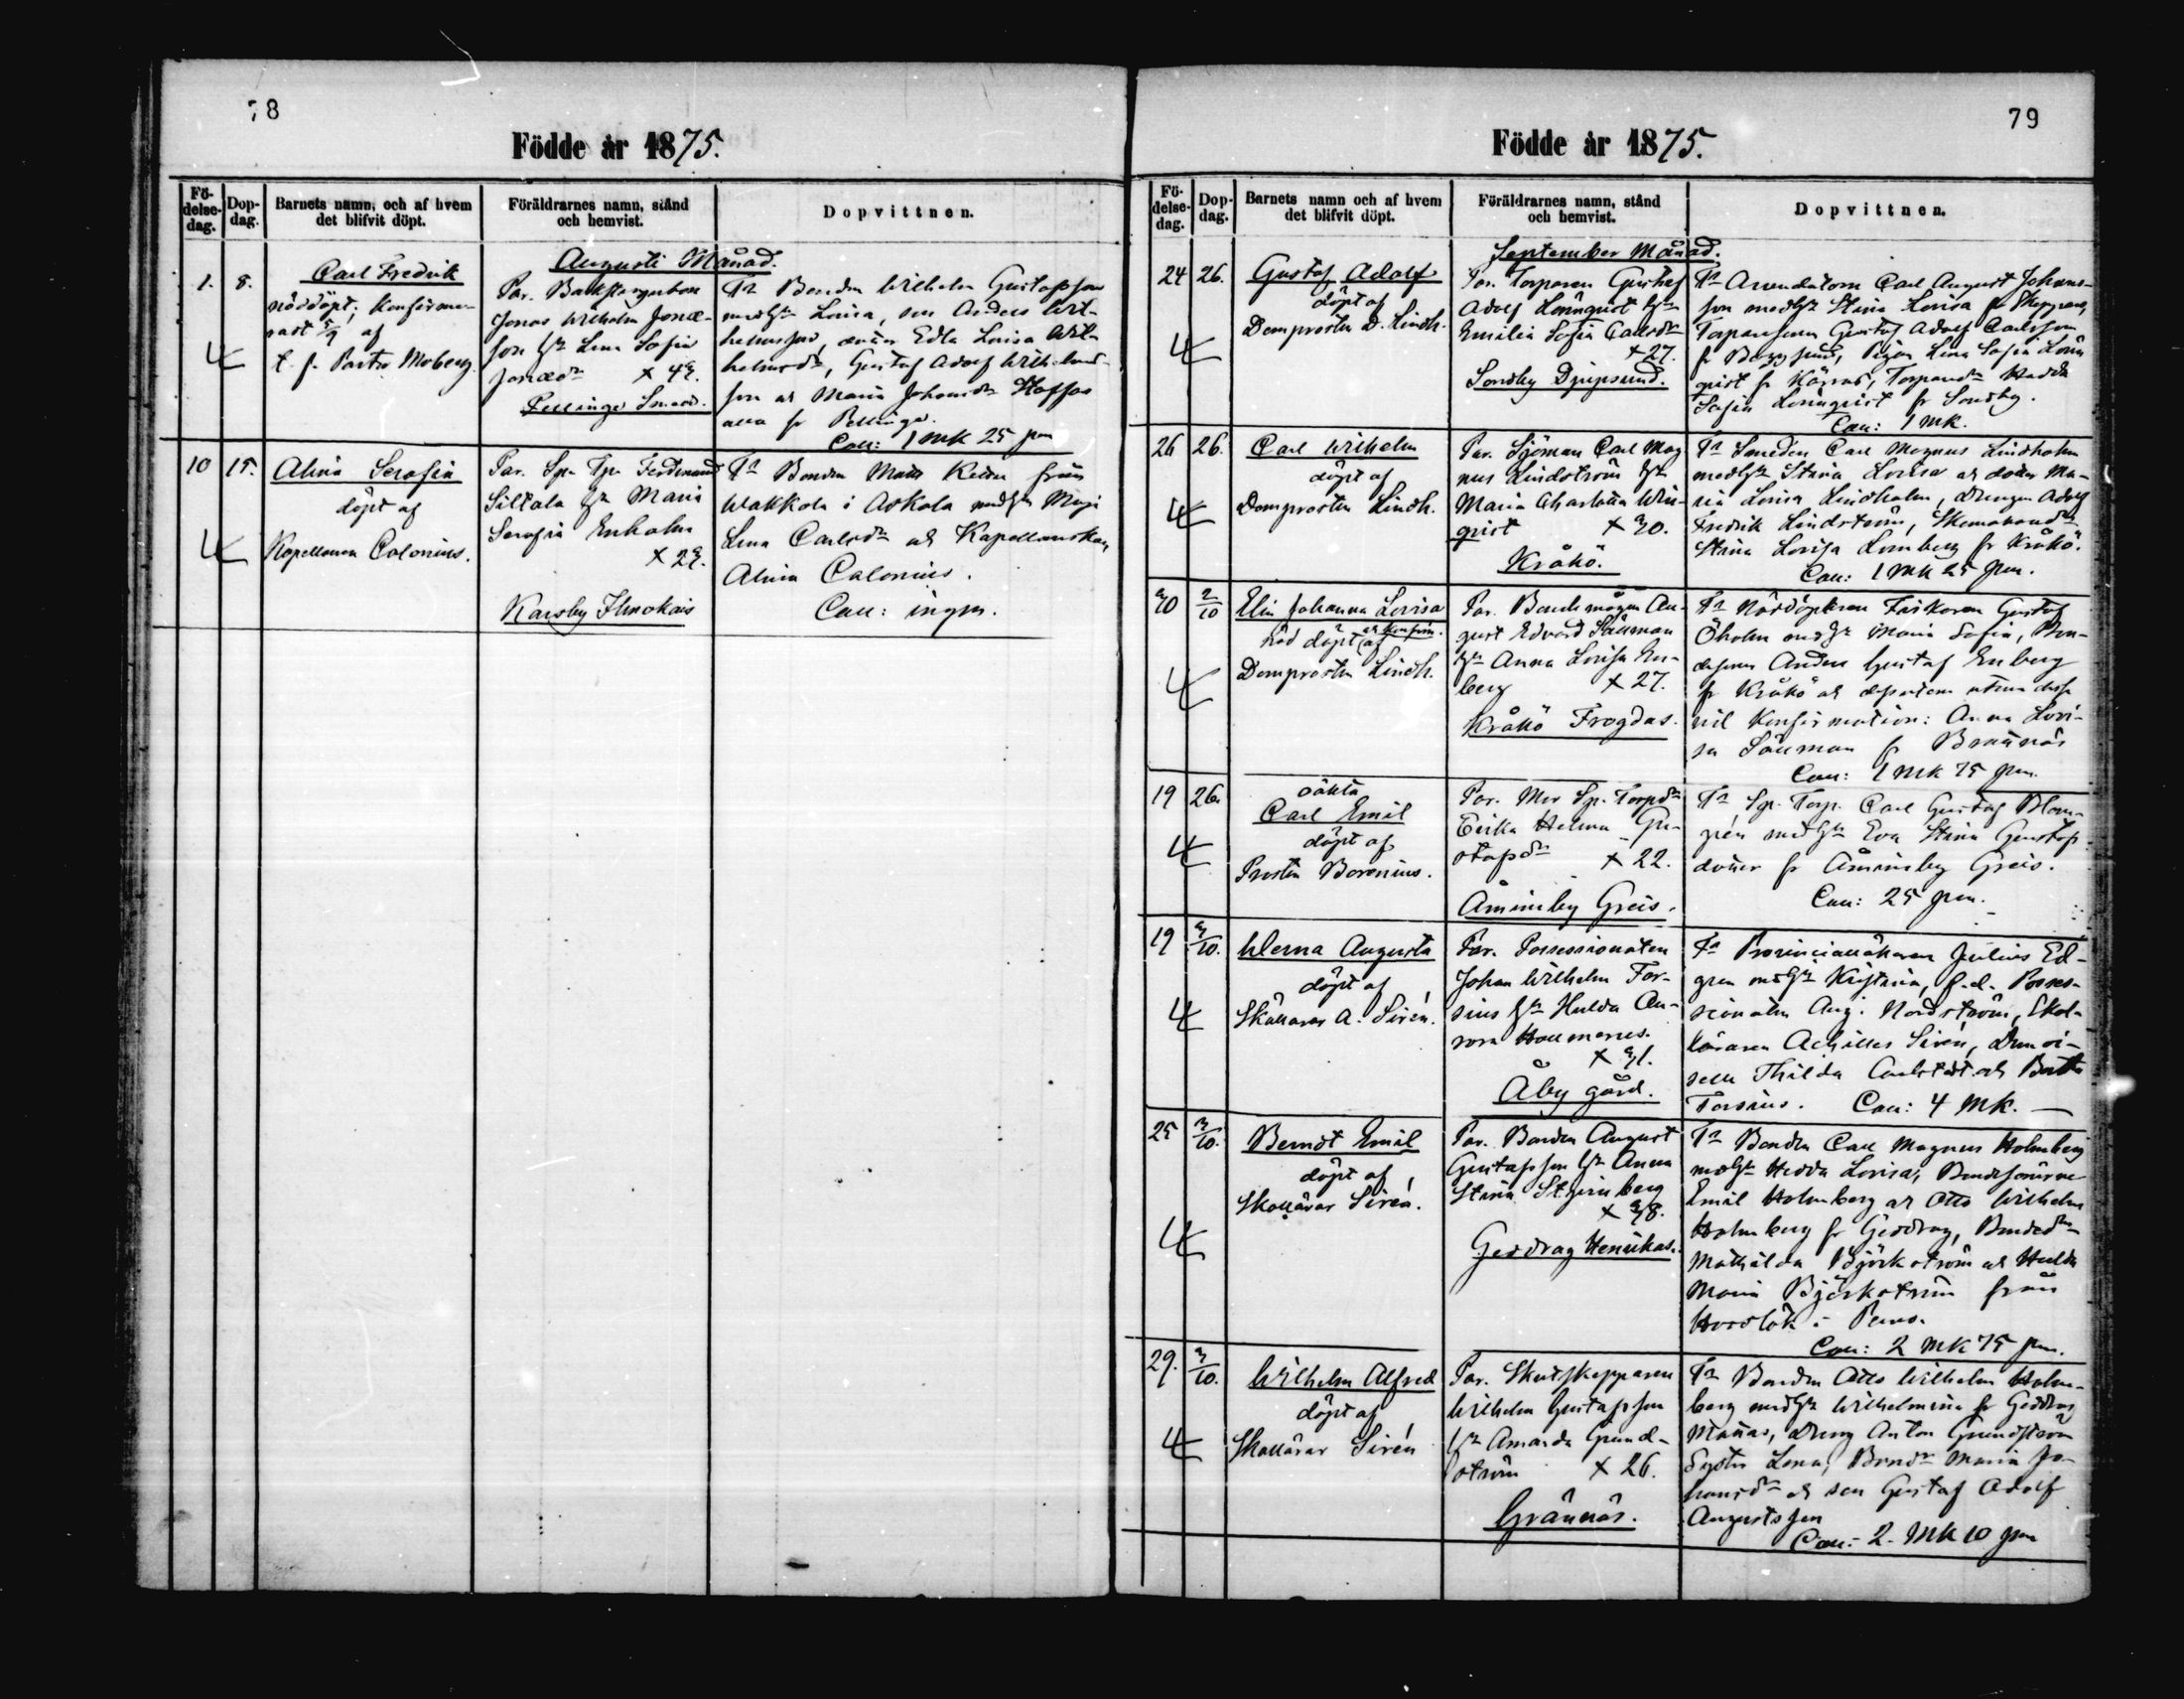 78
Födde år 1875.
Fö-
delse-
dag.
Dop-
dag.
Barnets namn, och af hvem
det blifvit döpt.
Föräldrarnes namn, stånd
och hemvist.
Dopvittnen.
Augusti Månad.
1.
8.
Carl Fredrik
nöddöpt; Konfirme-
rast 5/9 af
t. f. Pastor Moberg.
Par. Backstugubon
Jonas Wilhelm Jonæ-
son
Lena Sofia
Jonædr
Pellinge
Bonden Wilhelm Gustafsson
Lovisa, son Anders Wil-
helmsson, Edla Lovisa Wil-
helmsdr, Gustaf Adolf Wilhelms-
son och Maria Johansdr Staffas
alla fr Pellinge.
Coll: 1 mk 25 pm
10
15.
Alina Serafia
döpt af
Kapellanen Calonius.
Par. Ferdinand
Siltala Maria
Serafia Enholm
x 23.
Karsby Ilmokais
Bonden Matts från
Wakkola i Askola
Lena Carlsdr och Kapellanskan
Alina Calonius.
Coll: ingen.
79
Födde år 1875.
Fö-
delse-
dag.
Dop-
dag.
Barnets namn och af hvem
det blifvit döpt.
Föräldrarnes namn, stånd
och hemvist.
Dopvittnen.
September Månad.
24
26.
Gustaf Adolf
döpt af
Domprosten D. Lindh.
Par. Torparen Gustaf
Adolf Lönnquist
Emilia Sofia Carlsdr
x 27.
Sondby Djupsund.
Arrendatorn Carl August Johans-
son Stina Lovisa
Torparesonen Gustaf Adolf Carlsson
Pigan Lena Sofia Lönn
qvist fr Kärras, Hedda
Sofia Lönnqvist fr Sondby.
Coll: 1 mk.
26
26.
Carl Wilhelm
döpt af
Domprosten Lindh.
Par. Sjöman Carl Mag
nus Lindström
Maria Charlotta Win-
qvist x 30.
Kråkö.
Smeden Carl Magnus Lindholm
Stina Lovisa och dotter Ma-
ria Lovisa Lindholm, drengen Adolf
Fredrik Lindström,
Stina Lovisa Lönnberg fr Kråkö.
Coll: 1 mk 25 pm.
30
2/10
Elin Johanna Lovisa
nöddöpt och konfirm.
af
Domprosten Lindh.
Par. Bondemågen Au-
gust Edvard Sällman
Anna Lovisa En-
berg x 27.
Kråkö Frogdas.
Nöddöparen Fiskaren Gustaf
Öholm Maria Sofia, Bon-
desonen Anders Gustaf Enberg
fr Kråkö och
vid Konfirmation: Anna Lovi-
sa Sällman fr Brännäs
Coll: 1 mk 75 pm.
19
26.
oäkta
Carl Emil
döpt af
Prosten Borenius.
Par. Mor
Erika Helena Gu-
stafsdr x 22.
Åminsby Greis.
Carl Gustaf Blom-
grén Eva Stina Gustafs-
dotter fr Åminsby Greis.
Coll: 25 pm.
19
3/10.
Werna Augusta
döpt af
Skollärar A. Sirén.
Par. Possessionaten
Johan Wilhelm For-
sius Hulda Au-
rora Hollmerus.
x 31.
Åby gård.
Provincialläkaren Julius Ed-
gren Kristina, f.d. Posses-
sionaten Aug. Nordström, Skol-
läraren Achilles Sirén, Demoi-
selle Thilda Carlstedt och Berta
Forsius. Coll: 4 mk.
25
3/10.
Berndt Emil
döpt af
Skollärar Sirén.
Par. Bonden August
Gustafsson Anna
Stina Stjernberg
x 38.
Geddrag Henrikas.
Bonden Carl Magnus Holmberg
Hedda Lovisa, Bondesönerne
Emil Holmberg och Otto Wilhelm
Holmberg fr Geddrag,
Mathilda Björkström och Hulda
Maria Björkström från
i Perno.
Coll: 2 mk 75 pm.
29.
3/10.
Wilhelm Alfred
döpt af
Skollärar Sirén
Par. Skutskepparen
Wilhelm Gustafsson
Amanda Grund-
ström x 26.
Grännäs.
Bonden Otto Wilhelm Holm-
berg Wilhelmina fr Geddrag
Dreng Anton Grundström
Syster Lena, Maria Jo-
hansdr och son Gustaf Adolf
Augustsson
Coll: 2 mk 10 pm